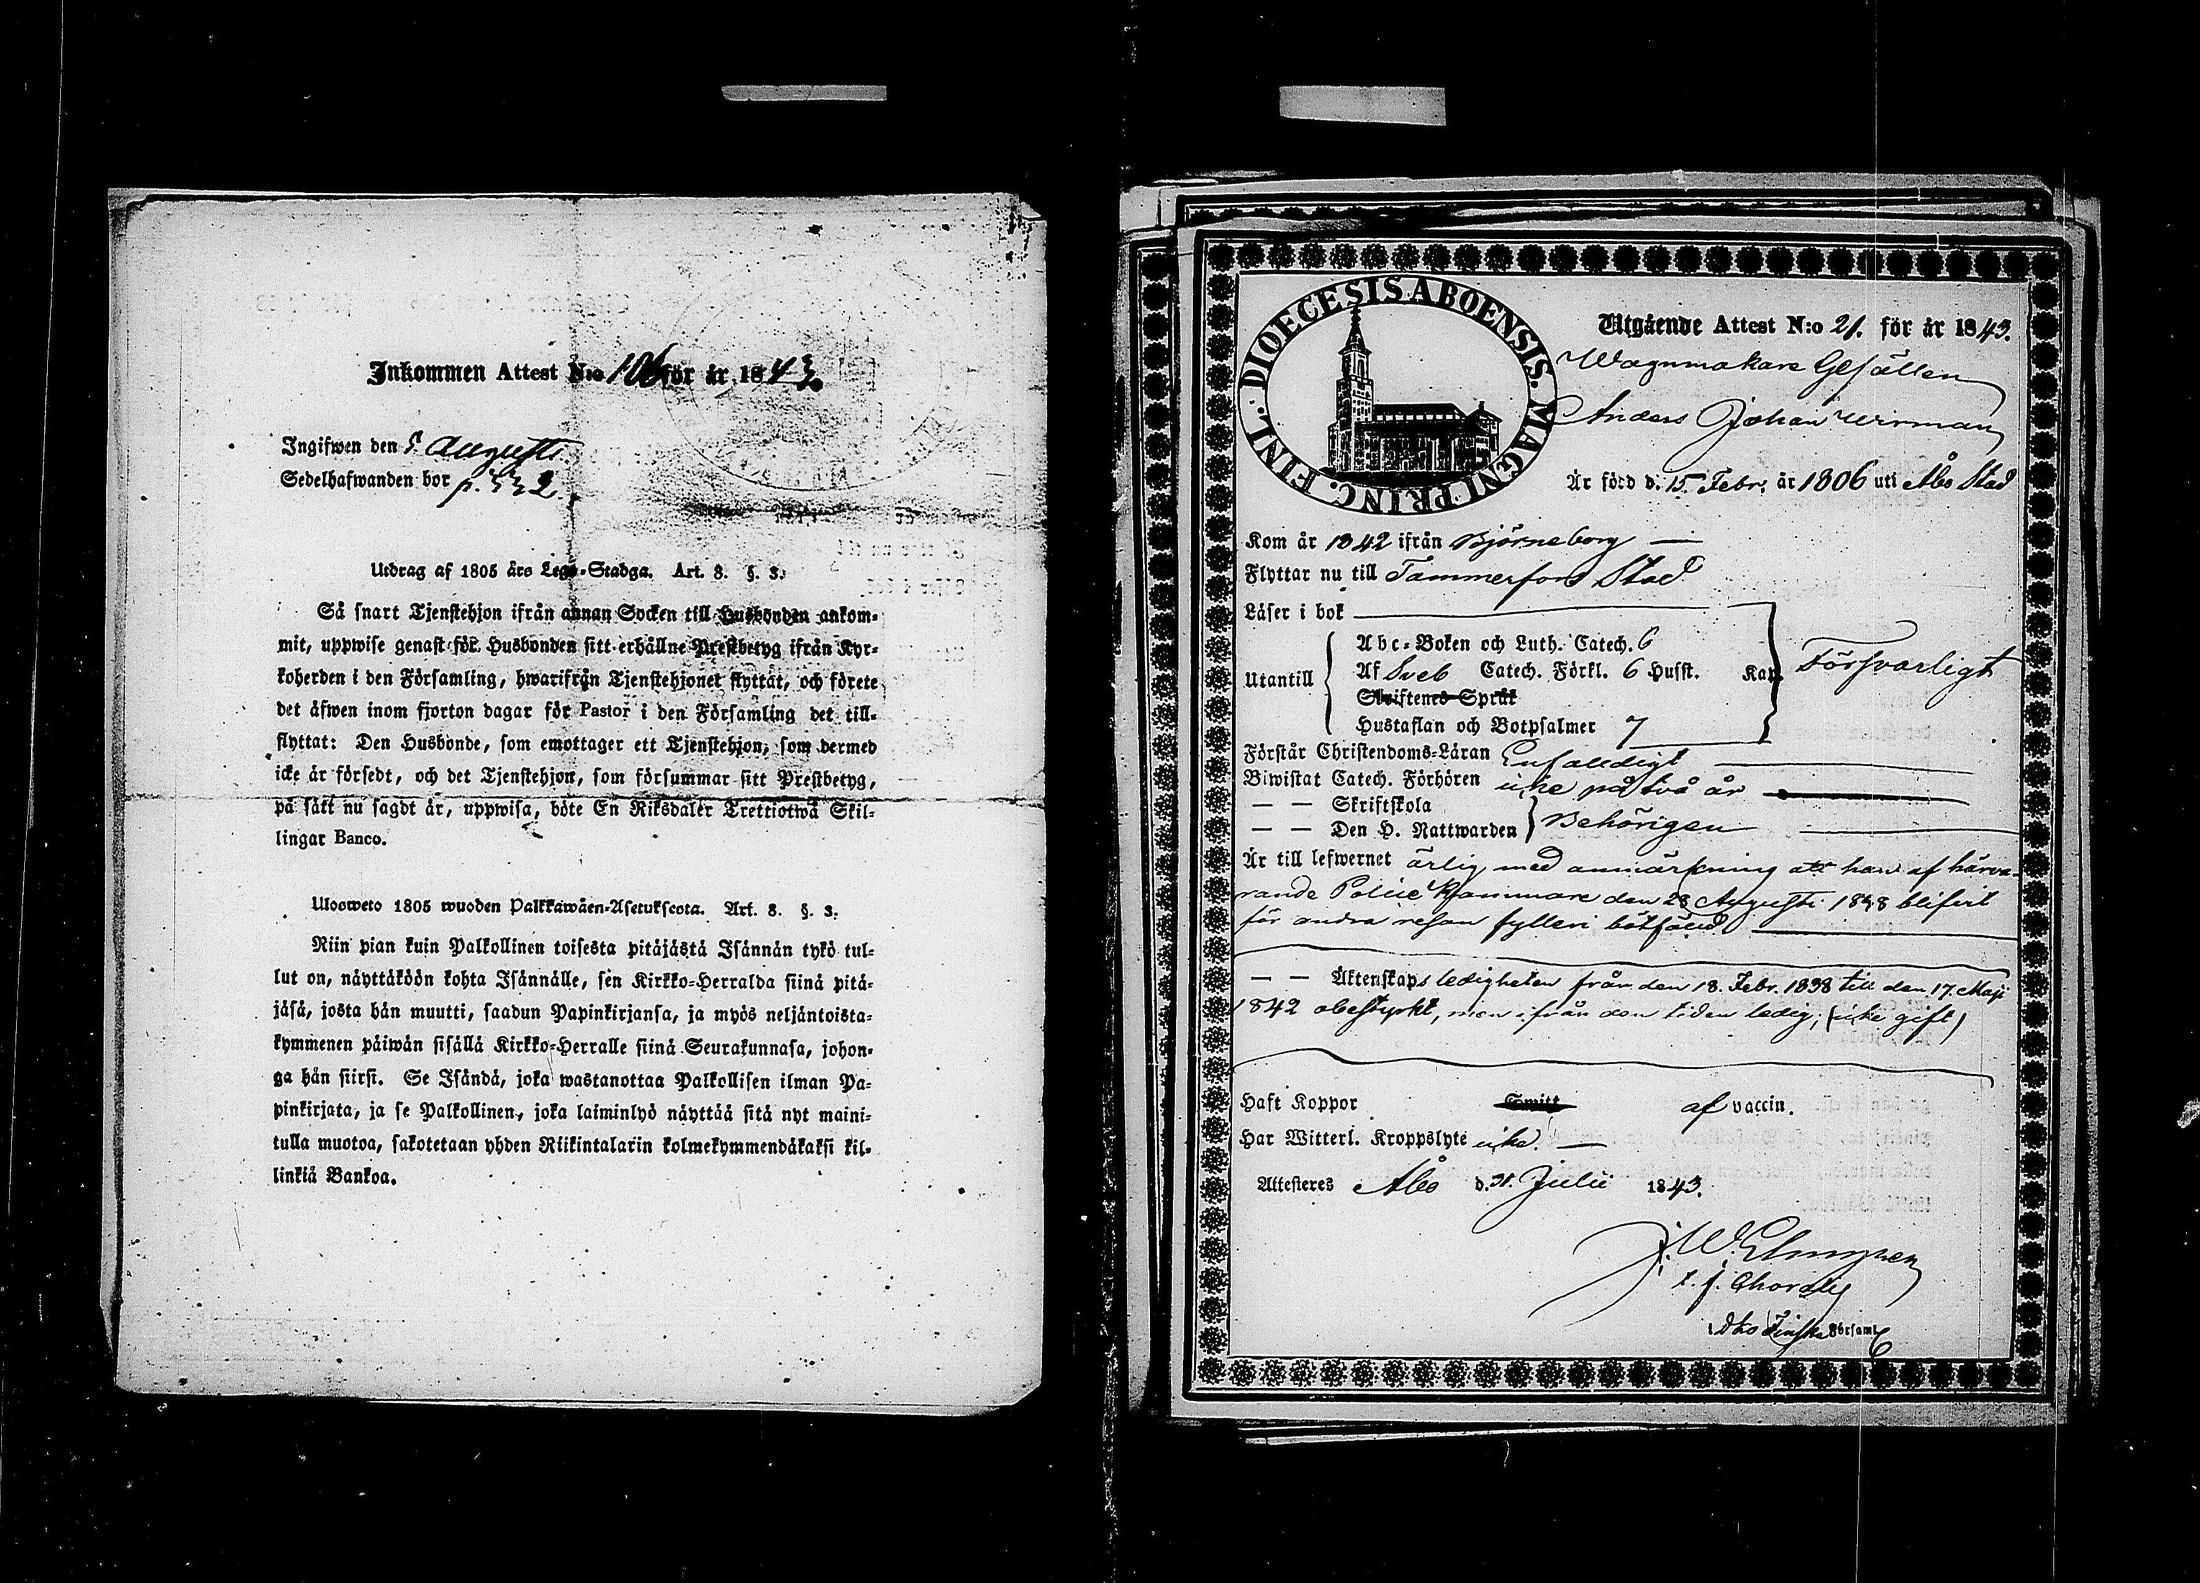 Inkommen Attest N:o 106 för år 1843.
Ingifwen den 5. Augusti.
Sedelhafwanden bor p. 532.
Utdrag af 1805 års Lego-Stadga. Art. 8. §. 3.
Så snart Tjenstehjon ifrån annan Socken till Husbonden ankom-
mit, uppwise genast för Husbonden sitt erhållne Prestbetyg ifrån Kyr-
koherden i den Församling, hwarifrån Tjenstehjonet flyttat, och förete
det äfwen inom fjorton dagar för Pastor i den Församling det till-
flyttat: Den Husbonde, som emottager ett Tjenstehjon, som dermed
icke är försedt, och det Tjenstehjon, som försummar sitt Prestbetyg,
på sätt nu sagdt är, uppwisa, böte En Riksdaler Trettiotwå Skil-
lingar Banco.
Ulosweto 1805 wuoden Palkkawäen-Asetuksesta. Art. 8. §. 3.
Niin pian kuin Palkollinen toisesta pitäjästä Isännän tykö tul-
lut on, näyttäköön kohta Isännälle, sen Kirkko-Herralda siinä pitä-
jäsä, josta hän muutti, saadun Papinkirjansa, ja myös neljäntoista-
kymmenen päiwän sisällä Kirkko-Herralle siinä Seurakunnasa, johon-
ga hän siirsi. Se Isändä, joka wastanottaa Palkollisen ilman Pa-
pinkirjata, ja se Palkollinen, joka laiminlyö näyttää sitä nyt maini-
tulla muotoa, sakotetaan yhden Riikintalarin kolmekymmendäkaksi kil-
linkiä Bankoa.
DIOECESIS ABOENSIS. MAGNI PRINC. FINL.
Utgående Attest N:o 21. för år 1843.
Wagnmakare Gesällen
Anders Johan Wirman
Är född d. 15. Febr. år 1806 uti Åbo Stad
Kom år 1842 ifrån Björneborg
Flyttar nu till Tammerfors Stad
Läser i bok
Utantill
Abc-Boken och Luth. Catech. 6
Af Sveb Catech. Förkl. 6 Husst. Kap. Försvarligt
Skriftenes Språk
Hustaflan och Botpsalmer 7
Förstår Christendoms-Läran Enfaldigt
Biwistat Catech. Förhören icke på två år
— — Skriftskola
— — Den H. Nattwarden Behörigen
Är till lefwernet ärlig med anmärkning att han af härva-
rande Police Kammare den 28 Augusti 1838 blifvit
för andra resan fylleri bötfälld
— — Äktenskaps ledigheten från den 18. Febr. 1838 till den 17. Maji
1842 obestyrkt, men ifrån den tiden ledig, (icke gift)
Haft Koppor Smitt af vaccin.
Har Witterl. Kroppslyte icke.
Attesteres Åbo d. 31. Julii 1843.
J. W.
t. f.
i Åbo Finska Församl